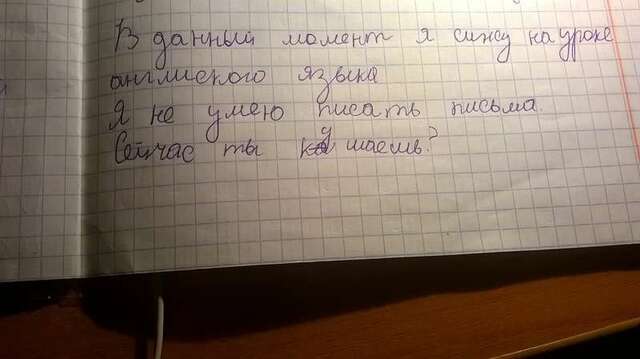 В данный момент я сижу на уроке
английского языка
Я не умею писать письма.
Сейчас ты кушаешь?